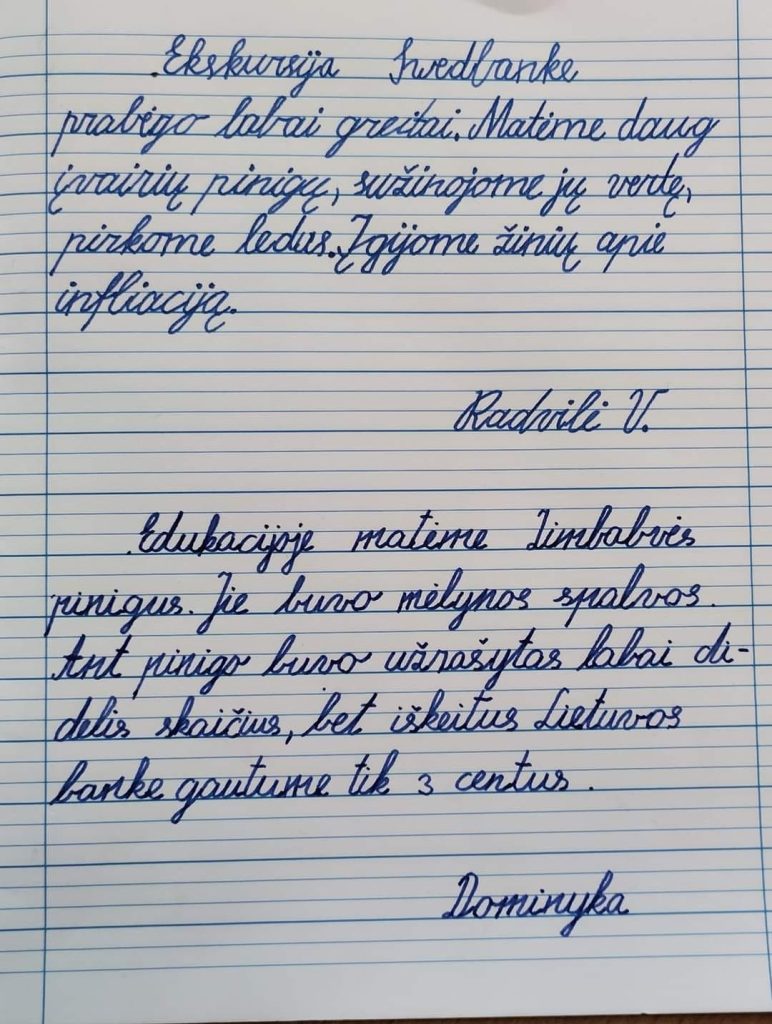 Ekskursija Swedbanke
prabėgo labai greitai. Matėme daug
įvairių pinigų, sužinojome jų vertę,
pirkome ledus. Įgijome žinių apie
infliaciją.
Radvilė V.
Edukacijoje matėme Zimbabvės
pinigus. Jie buvo mėlynos spalvos.
Ant pinigo buvo užrašytas labai di-
delis skaičius, bet iškeitus Lietuvos
banke gautume tik 3 centus.
Dominyka